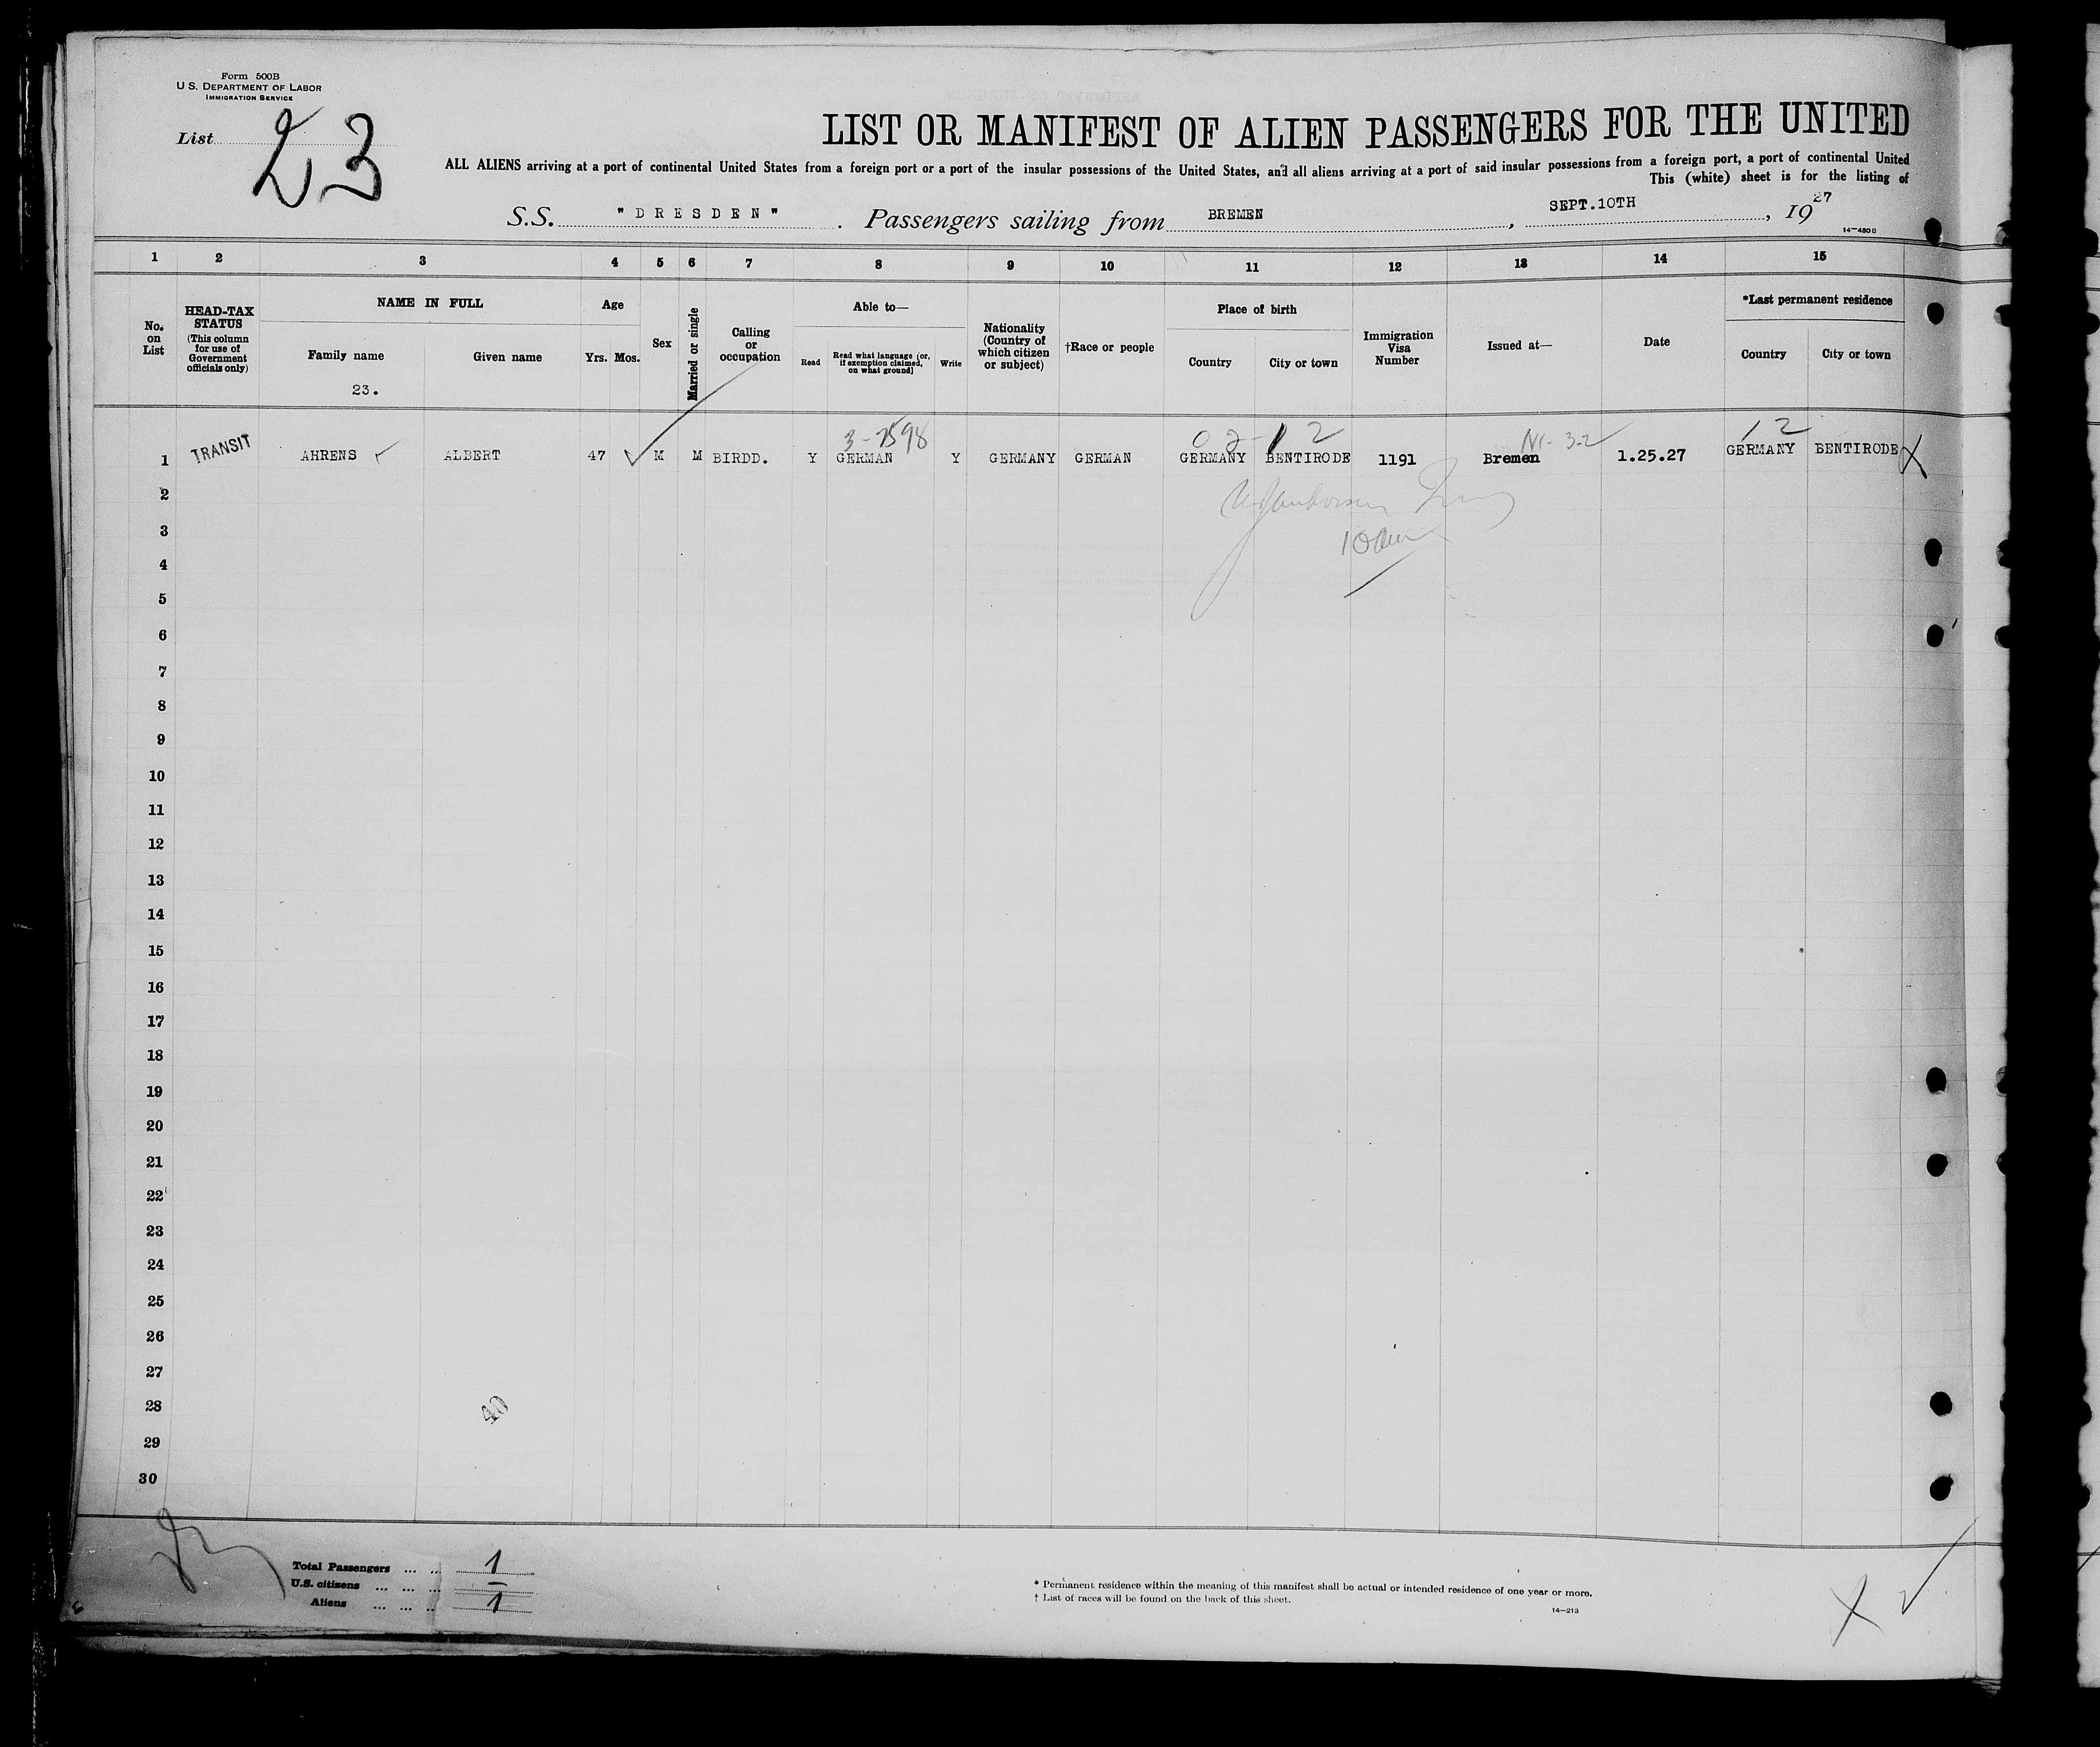 Form 500B
U S. DEPARTMENT OF LABOR
IMMIGRATION SERVICE
List 23
LIST OR MANIFEST OF ALIEN PASSENGERS FOR THE UNITED
ALL ALIENS arriving at a port of continental United States from a foreign port or a port of the insular possessions of the United States, and all aliens arriving at a port of said insular possessions from a foreign port, a port of continental United
This (white) sheet is for the listing of
S.S. "DRESDEN". Passengers sailing from BREMEN, SEPT.10TH, 1927
14—480B
1 2 3 4 5 6 7 8 9 10 11 12 13 14 15
No. on List
HEAD-TAX STATUS (This column for use of Government officials only)
NAME IN FULL
Family name
Given name
23.
Age
Yrs. Mos.
Sex
Married or single
Calling or occupation
Able to—
Read
Read what language [or, if exemption claimed, on what ground]
Write
Nationality (Country of which citizen or subject)
†Race or people
Place of birth
Country
City or town
Immigration Visa Number
Issued at—
Date
*Last permanent residence
Country
City or town
3-7598 02-12 12
1 TRANSIT AHRENS ALBERT 47 M M BIRDD. Y GERMAN Y GERMANY GERMAN GERMANY BENTIRODE 1191 Bremen 1.25.27 GERMANY BENTIRODE X
2
3
4
5
6
7
8
9
10
11
12
13
14
15
16
17
18
19
20
21
22
23
24
25
26
27
28
40
29
30
Total Passengers ... ... 1
U.S. citizens ... ... ... —
Aliens ... ... .. 1
* Permanent residence within the meaning of this manifest shall be actual or intended residence of one year or more.
† List of races will be found on the back of this sheet.
14—213
X